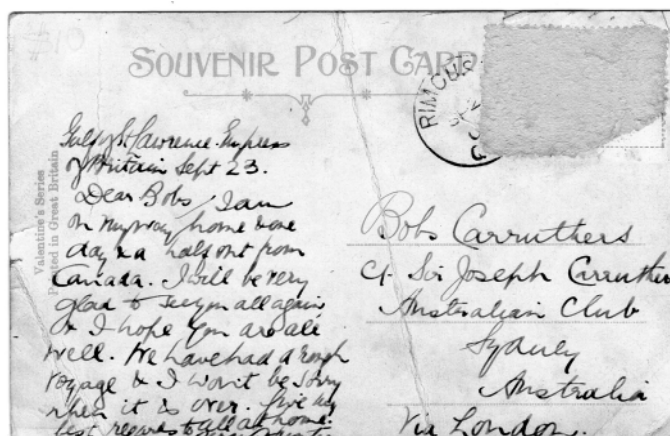 $10
SOUVENIR POST CARD
RIMOUS
Valentine's Series
Printed in Great Britain
Gulf of St Lawrence. Empress
of Britain Sept 23.
Dear Bobs, I am
on my way home & one
day & a half out from
Canada. I will be very
glad to see you all again
& I hope you are all
well. We have had a rough
voyage & I won't be sorry
when it is over. Give my
best regards to all at home.
Bobs Carruthers
c/- Sir Joseph Carruther
Australian Club
Sydney
Australia
Via London.